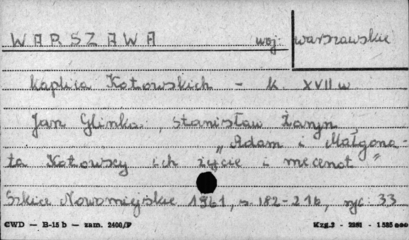 WARSZAWA woj: warszawskie
kaplica Kotowskich - k. XVII w
Jan Glinka, Stanisław Żaryn
"Adam i Małgorza-
ta Kotowscy ich życie i mecenat"
Szkice Nowomiejskie 1961, s. 182-216, ryc. 33
CWD — B-15 b — zam. 2400/P Kzg.3 - 2281 - 1 585 000